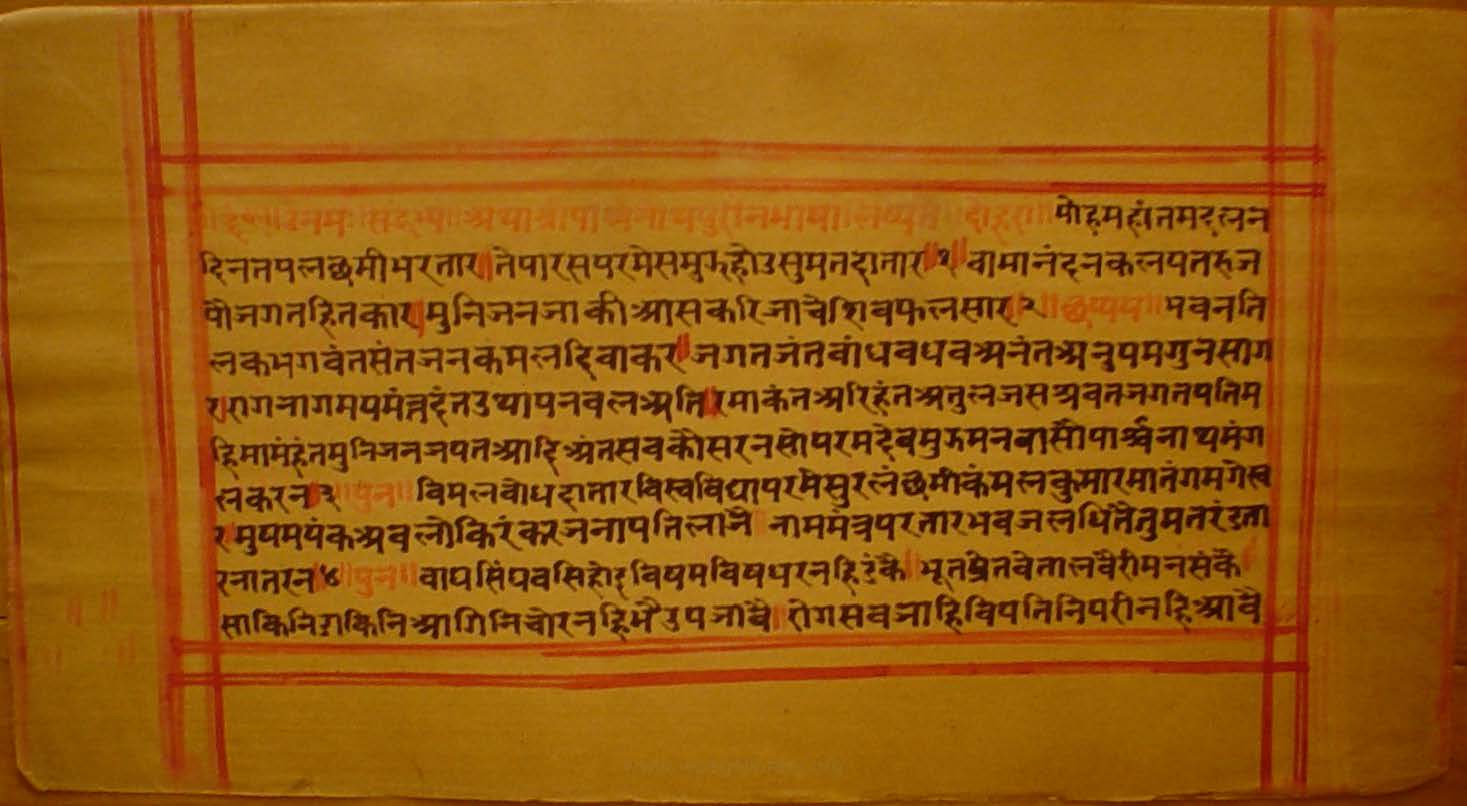 ॥ उनमः सिद्धेभ्यः॥ अथ श्रीपार्श्वनाथपुरानभाषा लिष्यते दोहरा॥ मोहमहांतमदलन
दिनतपलछमीभरतार॥ तेपारसपरमेसमुझहोउसुमतदातार॥१॥ वामानंदनकलपतरुज
पौजगतहितकार॥ मुनिजनजाकीआसकरिजाचैशिवफलसार॥२॥ छप्पय॥ भवनति
लकभगवंतसंतजनकंमलदिवाकर॥ जगतजंतबांधवधवअनंतअनुपमगुनसाग
ररागनागमयमंत्तदंतउथापनवलअति॥ रमाकंतअरिहंतअतुलजसअवतजगतपतिम
हिमामंहंतमुनिजनजपतआदिअंतसवकौसरनसोपरमदेवमुझमनबासौपार्श्वनाथमंग
लकरन३॥ पुन॥ विमलवोधदातारविस्वविद्यापरमेसुरलंछमीकंमलकुमारमातंगमगेस्व
रमुषमयंकअवलोकिरंकरजनापतिलाजै॥ नाममंत्रपरतारभवजलधितैतुमतरंडता
रनातरन४॥ पुन॥ वाघसिंघवसिहोइविषमविषधरनहिडंकै॥ भूतप्रेतवेतालवैरीमनसंकै॥
साकिनिडाकिनिआगिनिचोरनहिभैउपजावै॥ रोगसवजाहिविपतिनिपरीनहिआवै